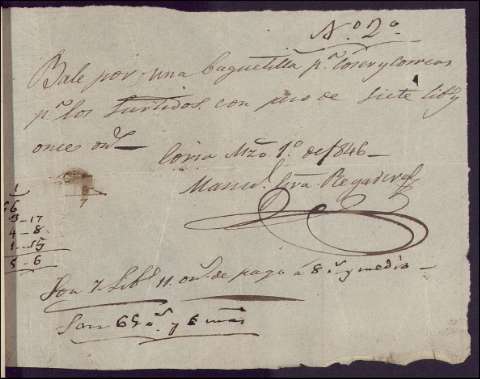 N.º 2.º
Bale por una baquetilla p.ª coser y correas
p.ª los surtidos con peso de siete lib.s y
once on.s
Coria Mzo 1.º de 1846
Manu.l Regadera
1
6
3-17
4-8
1-15
5-6
Son 7 Lib.s 11 on.s de pago a 8 r.s y medio
Son 65 r.s y 6 mrs